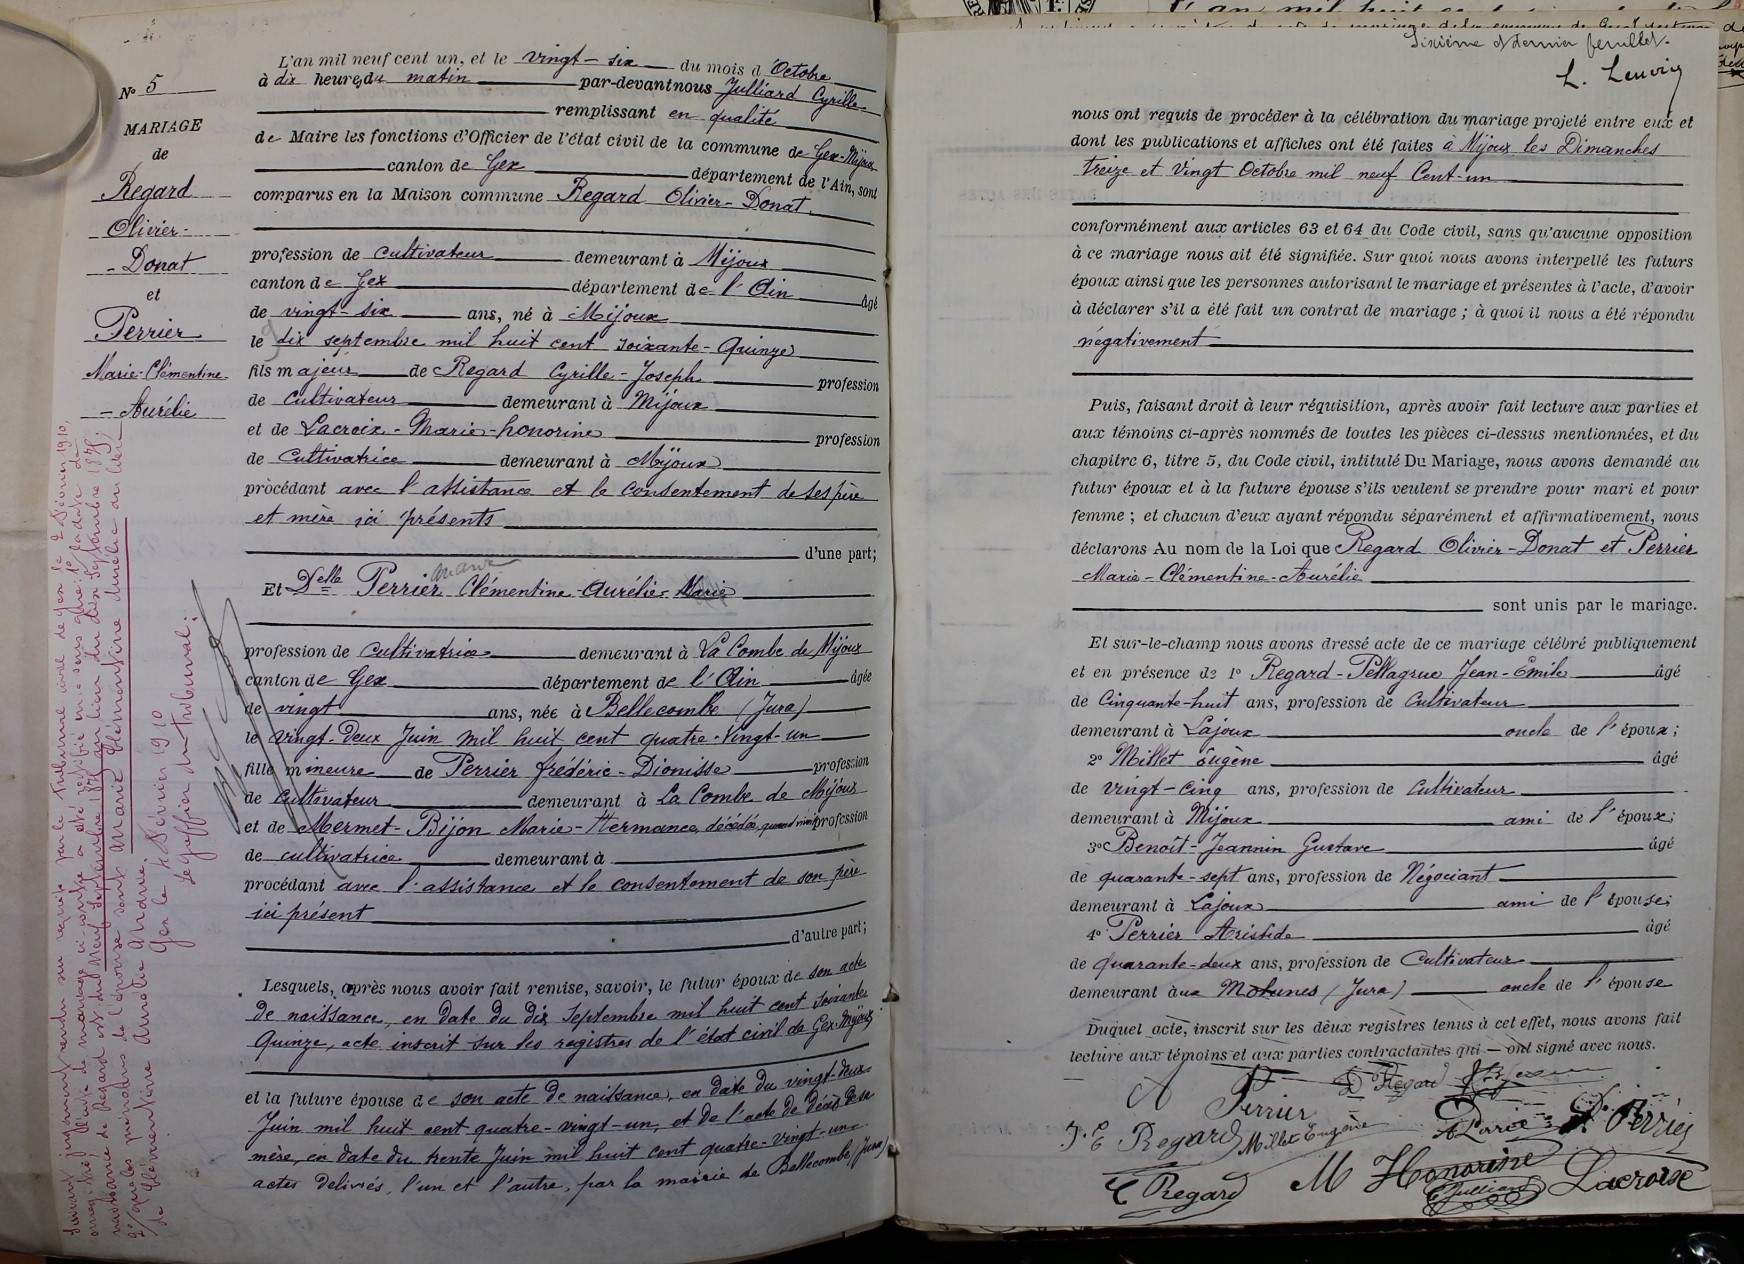 N° 5
MARIAGE
de
Regard
Olivier-
- Donat
et
Perrier
Marie-Clémentine
- Aurélie
L'an mil neuf cent un, et le vingt-six du mois d'Octobre
à dix heures du matin par-devant nous Julliard Cyrille
remplissant en qualité
de Maire les fonctions d'Officier de l'état civil de la commune de Gex-Mijoux
canton de Gex département de l'Ain, sont
comparus en la Maison commune Regard Olivier-Donat
profession de cultivateur demeurant à Mijoux
canton de Gex département de l'Ain âgé
de vingt-six ans, né à Mijoux
le dix septembre mil huit cent soixante-Quinze
9
fils majeur de Regard Cyrille-Joseph profession
de cultivateur demeurant à Mijoux
et de Lacroix-Marie-honorine profession
de cultivatrice demeurant à Mijoux
procédant avec l'assistance et le consentement de ses père
et mère ici présents
d'une part;
Et Delle Perrier Clémentine-Aurélie-Marie
profession de cultivatrice demeurant à La Combe de Mijoux
canton de Gex département de l'Ain âgée
de vingt ans, née à Bellecombe (Jura)
le vingt-deux Juin mil huit cent quatre-vingt-un
fille mineure de Perrier frédéric-Dionisse profession
de cultivateur demeurant à La Combe de Mijoux
et de Mermet-Bijon Marie-Hermance, décédée, quand vivait profession
de cultivatrice demeurant à
procédant avec l'assistance et le consentement de son père
ici présent
d'autre part;
Lesquels, après nous avoir fait remise, savoir, le futur époux de son acte
de naissance, en date du dix septembre mil huit cent soixante
Quinze, acte inscrit sur les registres de l'état civil de Gex-Mijoux
et la future épouse de son acte de naissance, en date du vingt-deux
Juin mil huit cent quatre-vingt-un, et de l'acte de décès de sa
mère, en date du trente Juin mil huit cent quatre-vingt-un
actes délivrés, l'un et l'autre, par la mairie de Bellecombe (Jura)
Suivant jugement rendu sur requête par le Tribunal civil de Gex le 2 Février 1910,
enregistré, l'acte de mariage ci-contre a été rectifié en ce sens que: 1° la date de
naissance de Regard est du neuf septembre 1875 au lieu du dix septembre 1875;
2° que les prénoms de l'épouse sont Marie Clémentine Aurélie au lieu
de Clémentine Aurélie Marie.
Gex le 4 Février 1910
Le greffier du tribunal:
Sixième et dernier feuillet.
nous ont requis de procéder à la célébration du mariage projeté entre eux et
dont les publications et affiches ont été faites à Mijoux les Dimanches
treize et Vingt Octobre mil neuf Cent-un
conformément aux articles 63 et 64 du Code civil, sans qu'aucune opposition
à ce mariage nous ait été signifiée. Sur quoi nous avons interpellé les futurs
époux ainsi que les personnes autorisant le mariage et présentes à l'acte, d'avoir
à déclarer s'il a été fait un contrat de mariage; à quoi il nous a été répondu
négativement
Puis, faisant droit à leur réquisition, après avoir fait lecture aux parties et
aux témoins ci-après nommés de toutes les pièces ci-dessus mentionnées, et du
chapitre 6, titre 5, du Code civil, intitulé Du Mariage, nous avons demandé au
futur époux et à la future épouse s'ils veulent se prendre pour mari et pour
femme; et chacun d'eux ayant répondu séparément et affirmativement, nous
déclarons Au nom de la Loi que Regard Olivier-Donat et Perrier
Marie-Clémentine-Aurélie
sont unis par le mariage.
Et sur-le-champ nous avons dressé acte de ce mariage célébré publiquement
et en présence de 1° Regard-Pellagrue Jean-Emile âgé
de Cinquante-huit ans, profession de Cultivateur
demeurant à Lajoux oncle de l'époux;
2° Millet Eugène âgé
de vingt-cinq ans, profession de Cultivateur
demeurant à Mijoux ami de l'époux;
3° Benoît-Jeannin Gustave âgé
de quarante-sept ans, profession de Négociant
demeurant à Lajoux ami de l'épouse;
4° Perrier Aristide âgé
de quarante-deux ans, profession de Cultivateur
demeurant aux Molunes (Jura) oncle de l'épouse
Duquel acte, inscrit sur les deux registres tenus à cet effet, nous avons fait
lecture aux témoins et aux parties contractantes qui ont signé avec nous.
A Perrier D Regard
J. E Regard Millet Eugène
D. Perrier
C Regard M Honorine Lacroix
Julliard